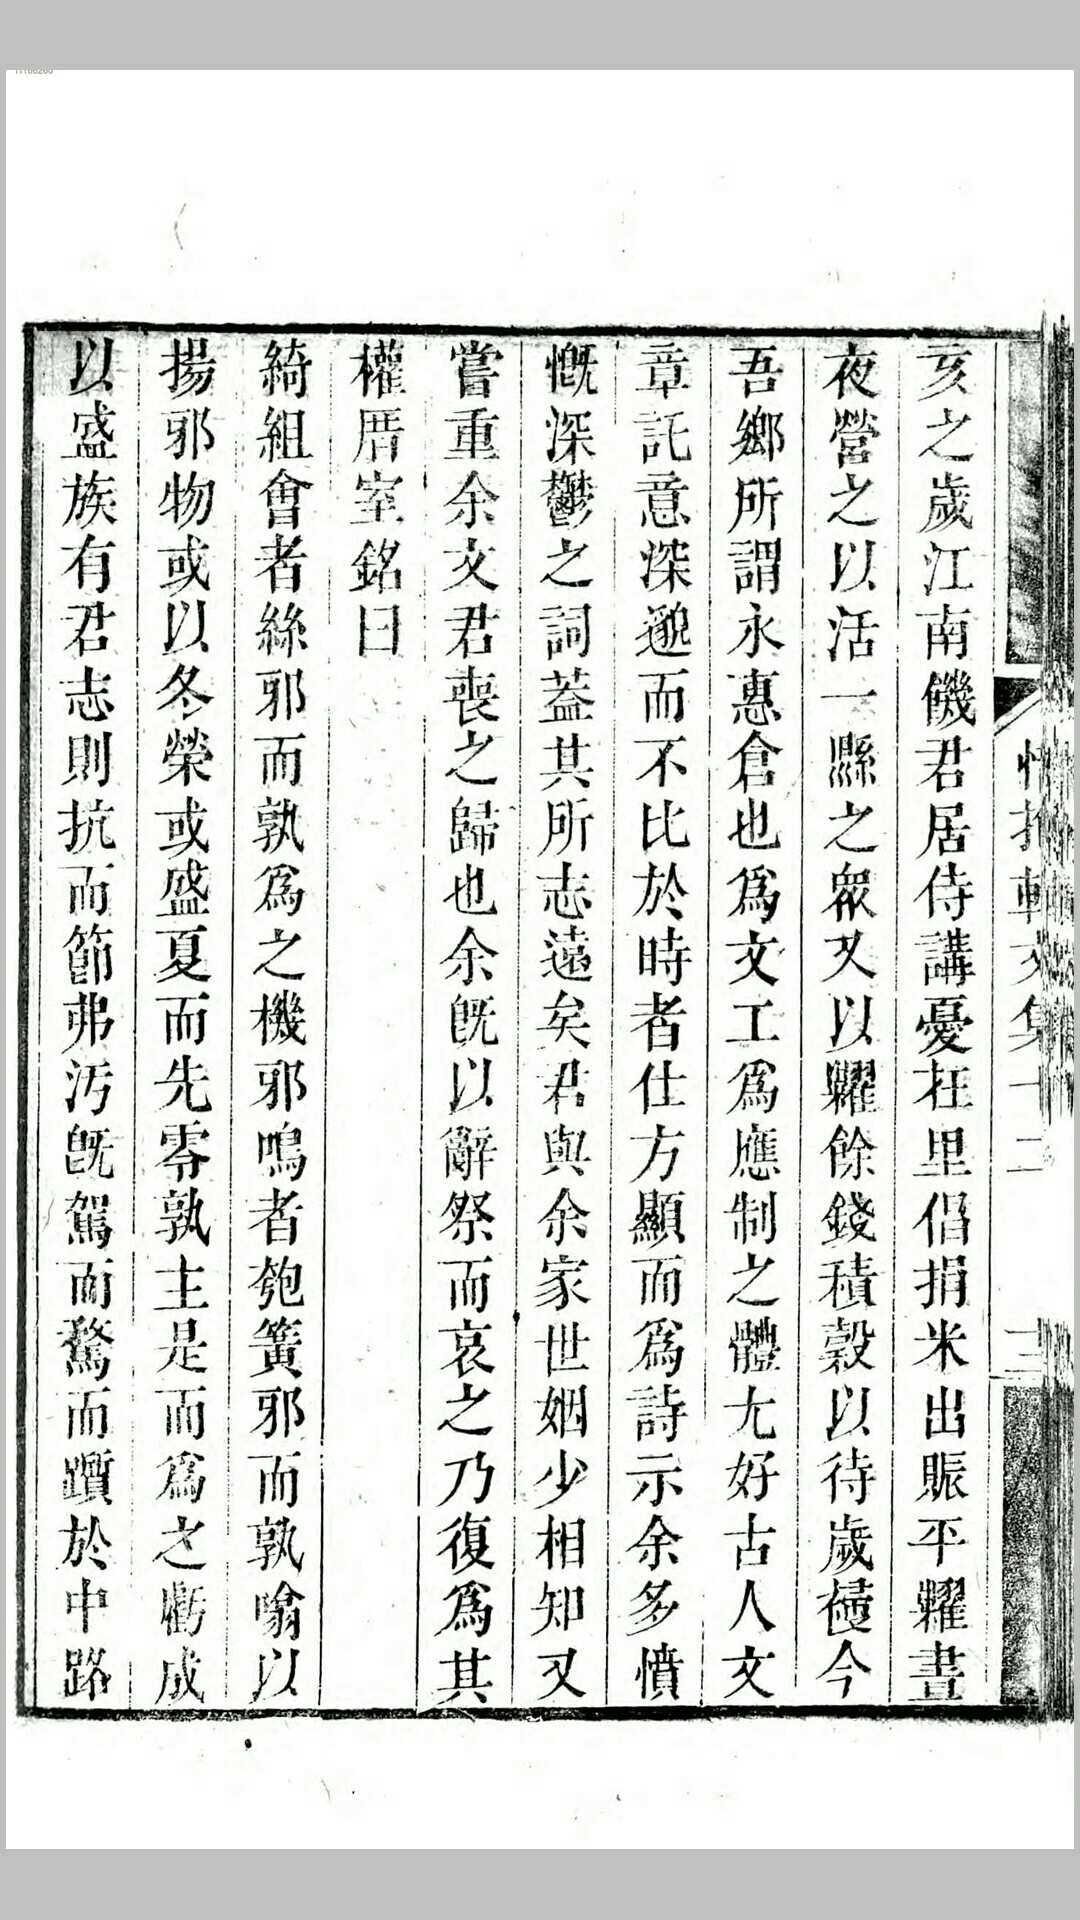 亥之歲江南饑君居侍講憂在里倡捐米出賑平糶晝
夜營之以活一縣之衆又以糶餘錢積穀以待歲祲今
吾鄉所謂永惠倉也爲文工爲應制之體尤好古人文
章託意深邈而不比於時者仕方顯而爲詩示余多憤
慨深鬱之詞蓋其所志遠矣君與余家世姻少相知又
嘗重余文君喪之歸也余旣以辭祭而哀之乃復爲其
權厝室銘曰
綺組會者絲邪而孰爲之機邪鳴者匏簧邪而孰噏以
揚邪物或以冬榮或盛夏而先零孰主是而爲之虧成
以盛族有君志則抗而節弗污旣駕而騖而躓於中路
軒文集十二